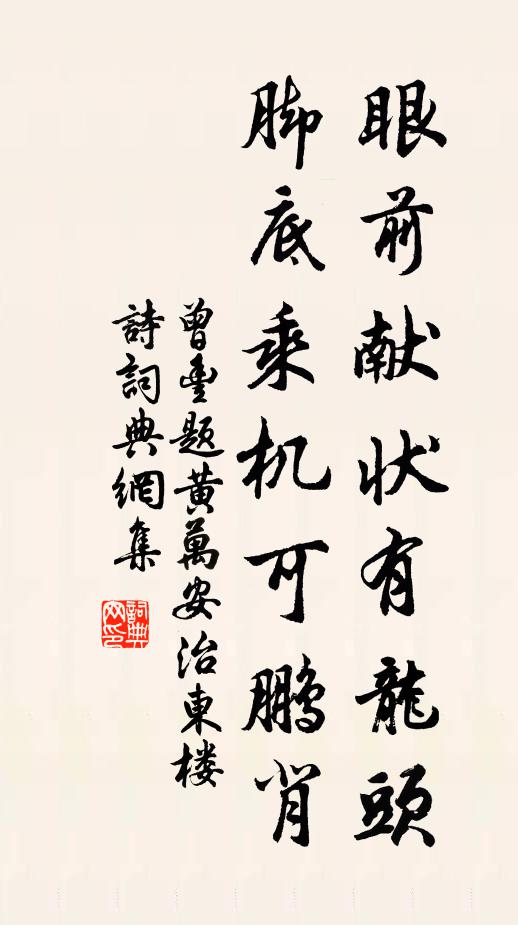 眼前献状有龍頭
脚底乘机可鹏背
曾豊題黄萬安治東楼
詩詞典網集
詞典網印